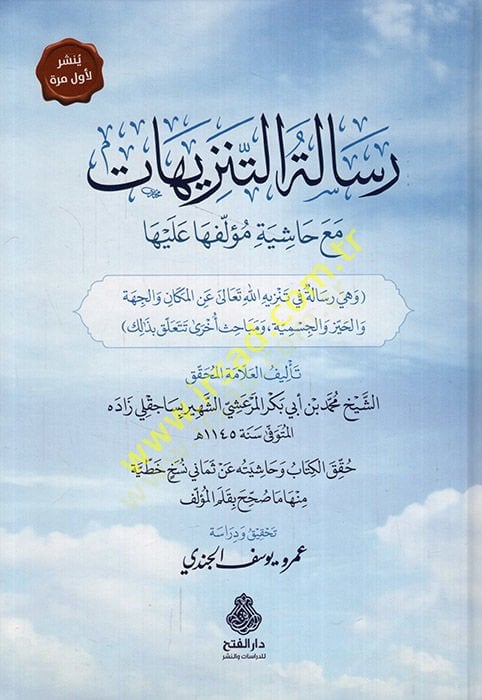 يُنشر
لأول مرة
رسالةُ التّنزيهات
مَعَ حَاشِيَةِ مُؤلّفهَا عَلَيْهَا
(وَهِيَ رِسَالةٌ في تَنزِيهِ اللهِ تَعَالىٰ عَنِ المكَانِ وَالجِهَةِ
وَالحَيِّزِ وَالجِسْمِيَّة، وَمَبَاحِث أُخْرَىٰ تَتَعَلّق بِذَلِك)
تَأليفُ العَلّامَة المُحَقّق
الشّيْخ مُحَمَّد بن أَبي بَكْر المَرْعَشِيّ الشّهِير بِسَاجَقلِي زَادَه
المُتَوفّىٰ سَنَة ١١٤٥هـ
حُقِّقَ الكِتَابُ وَحَاشِيَتُه عَنْ ثَمَاني نُسَخٍ خَطّيَّة
مِنْهَا مَا صُحِّحَ بِقَلَمِ المُؤلّف
تَحْقِيْقُ وَدِرَاسَة
عمرو يوسف الجندي
دار الفتح
للدراسات والنشر
www.irsad.com.tr